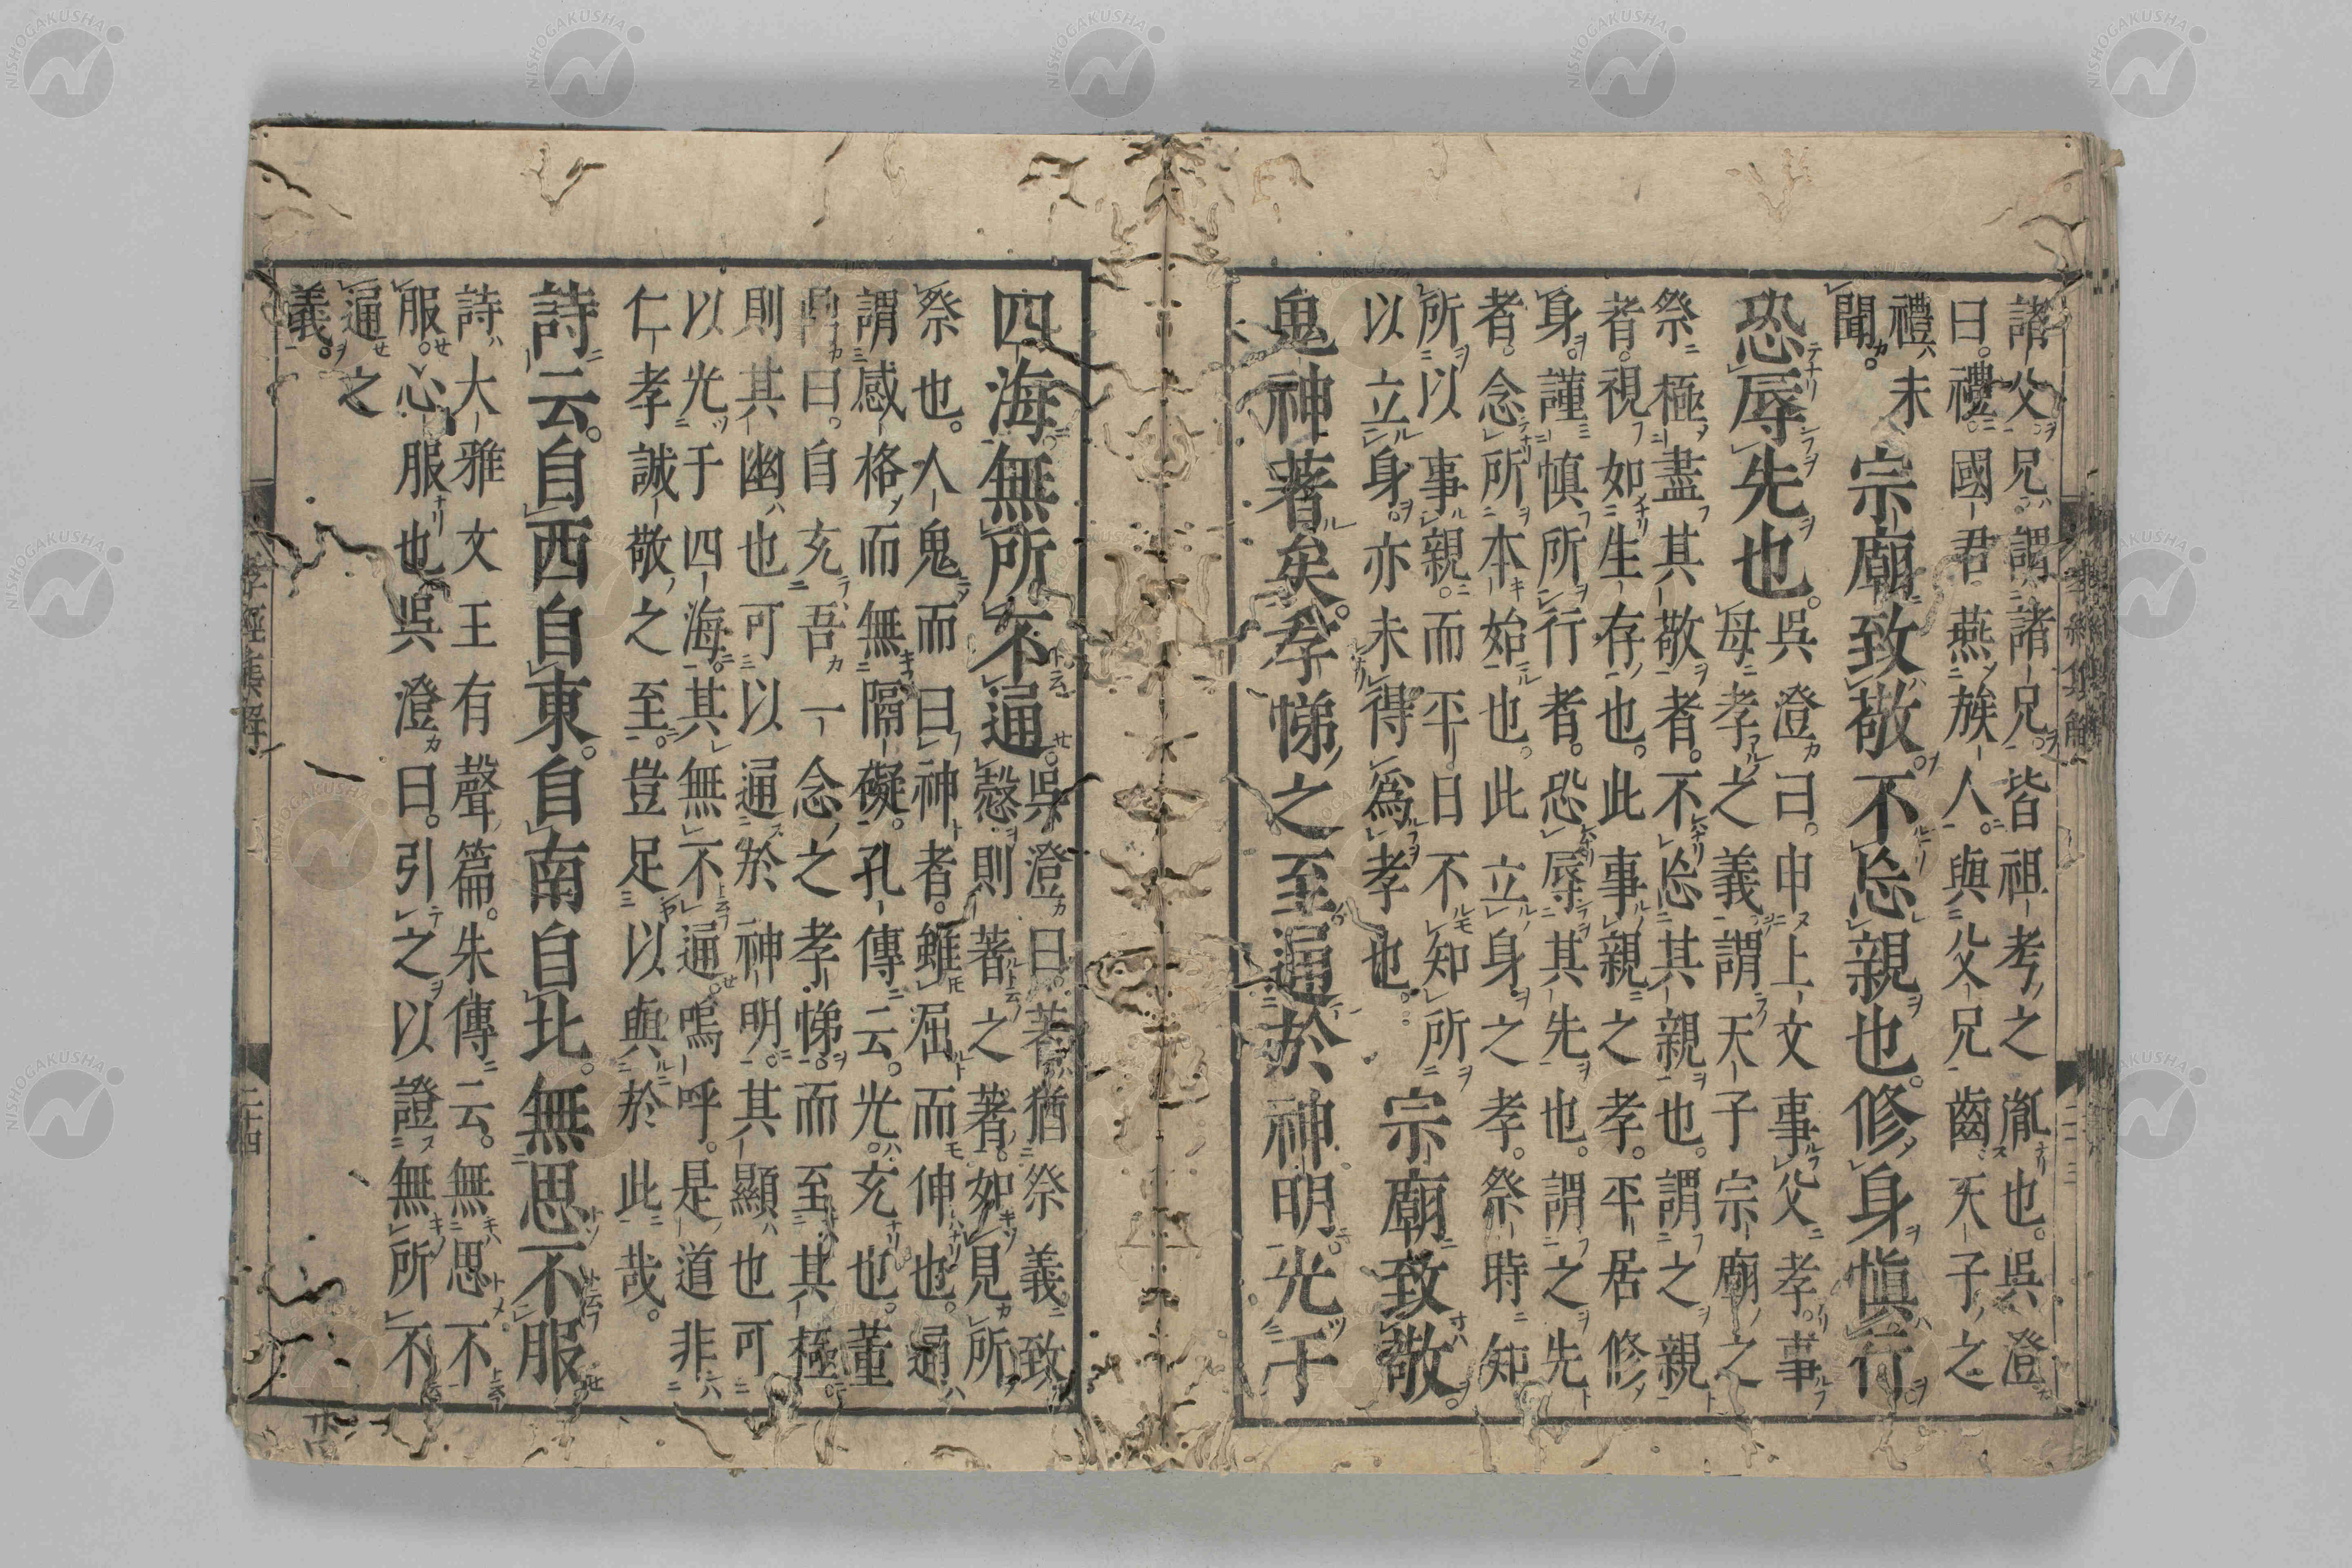 諸父兄謂諸兄皆祖考之胤也。吳澄
曰。禮。國君燕族人。與父兄齒天子之
禮未
聞。
宗廟致敬。不忘親也。修身愼行。
恐辱先也。
吳澄曰。申上文事父孝。事
母孝之義謂天子宗廟之
祭極盡其敬者。不忘其親也。謂之親
者。視如生存也。此事親之孝。平居修
身。謹慎所行者。恐辱其先也。謂之先
者。念所本始也。此立身之孝。祭時知
所以事親。而平日不知所
以立身。亦未得爲孝也。
宗廟致敬。
鬼神著矣。孝悌之至通於神明光于
四海。無所不通。
吳澄曰。著猶祭義。致
慤則著之著。如見所
祭也。人鬼而曰神者。雖屈而伸也。通
謂感格而無隔礙。孔傳云。光。充也。董
曰。自充吾一念之孝悌。而至其極
則其幽也可以通於神明。其顯也可
以光于四海。其無不通。嗚呼。是道非
仁孝誠敬之至。豈足以與於此哉。
詩云。自西自東。自南自北。無思不服
詩大雅文王有聲篇。朱傳云。無思不
服。心服也吳澄曰。引之以證無所不
通之
義。
孝經集解
二十四